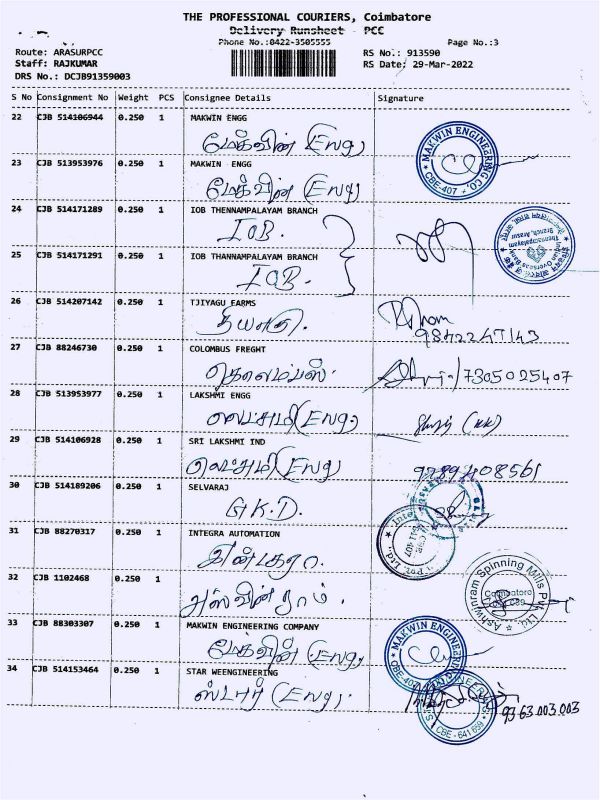 THE PROFESSIONAL COURIERS, Coimbatore
Delivery Runsheet - PCC
Phone No.:0422-3505555
Page No.:3
Route: ARASURPCC
RS No.: 913590
Staff: RAJKUMAR
RS Date: 29-Mar-2022
DRS No.: DCJB91359003
S No Consignment No Weight PCS Consignee Details Signature
22 CJB 514106944 0.250 1 MAKWIN ENGG
மேக்வின் (Eng)
MAKWIN ENGINEERING CO.
CBE-407
23 CJB 513953976 0.250 1 MAKWIN ENGG
மேக்வின் (Eng)
24 CJB 514171289 0.250 1 IOB THENNAMPALAYAM BRANCH
IOB.
Indian Overseas Bank
Thennampalayam
Branch, Arasur
25 CJB 514171291 0.250 1 IOB THANNAMPALAYAM BRANCH
IOB.
26 CJB 514207142 0.250 1 TJIYAGU FARMS
தியாகு.
9842247143
27 CJB 88246730 0.250 1 COLOMBUS FREGHT
கொலம்பஸ்.
7305025407
28 CJB 513953977 0.250 1 LAKSHMI ENGG
லட்சுமி (Eng)
29 CJB 514106928 0.250 1 SRI LAKSHMI IND
லட்சுமி (Eng)
9789408561
30 CJB 514189206 0.250 1 SELVARAJ
G.K.D.
31 CJB 88270317 0.250 1 INTEGRA AUTOMATION
இன்டகரா.
32 CJB 1102468 0.250 1
அஸ்வின்ராம்.
Ashwinram Spinning Mills Pvt. Ltd.
Coimbatore
33 CJB 88303307 0.250 1 MAKWIN ENGINEERING COMPANY
மேக்வின் (Eng)
MAKWIN ENGINEERING
CBE-407
34 CJB 514153464 0.250 1 STAR WEENGINEERING
ஸ்டார் (Eng).
CBE - 641 659
9363003003